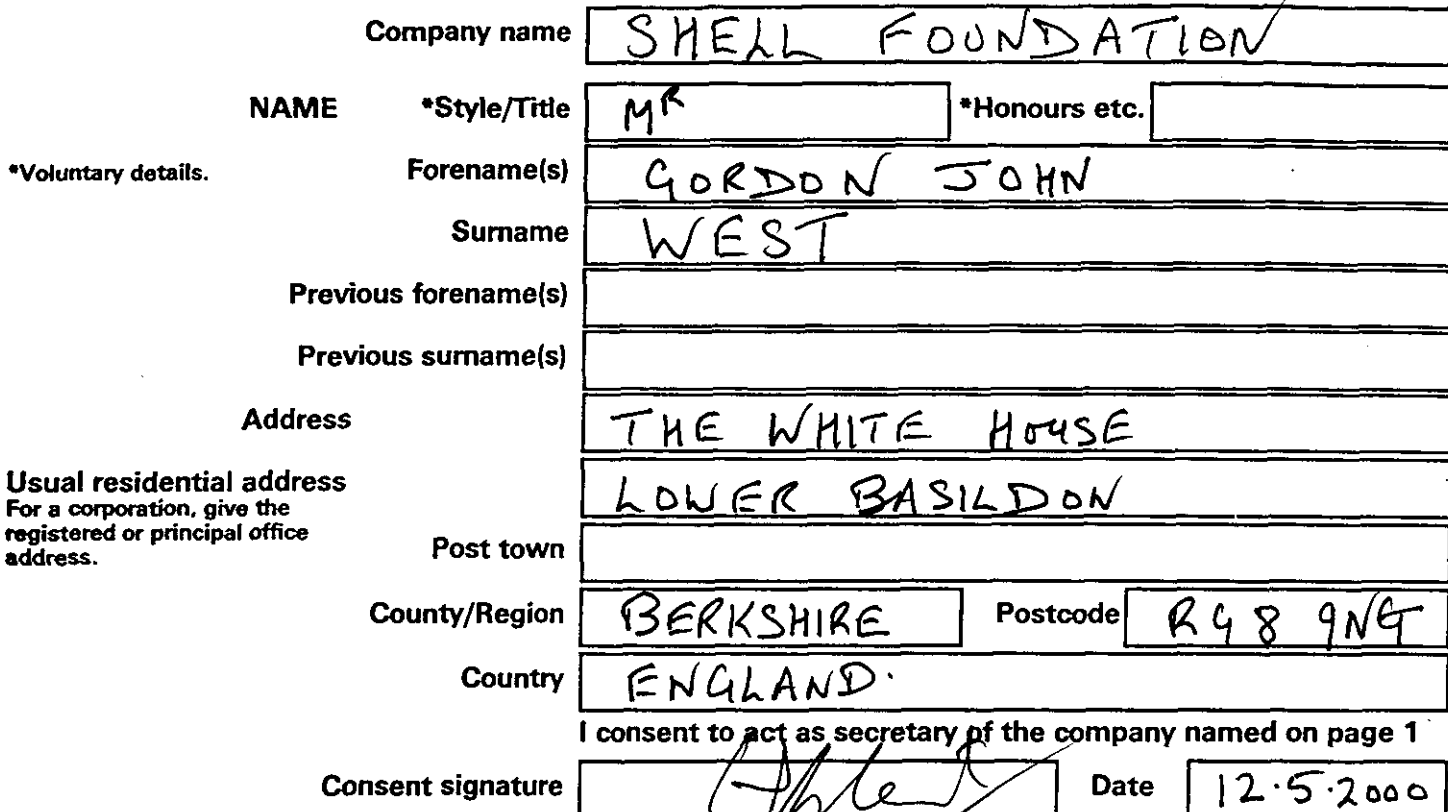 Company name SHELL FOUNDATION
NAME *Style/Title MR *Honours etc.
*Voluntary details. Forename(s) GORDON JOHN
Surname WEST
Previous forename(s)
Previous surname(s)
Address THE WHITE HOUSE
Usual residential address LOWER BASILDON
For a corporation, give the
registered or principal office
address.
Post town
County/Region BERKSHIRE Postcode RG8 9NG
Country ENGLAND.
I consent to act as secretary of the company named on page 1
Consent signature Date 12.5.2000